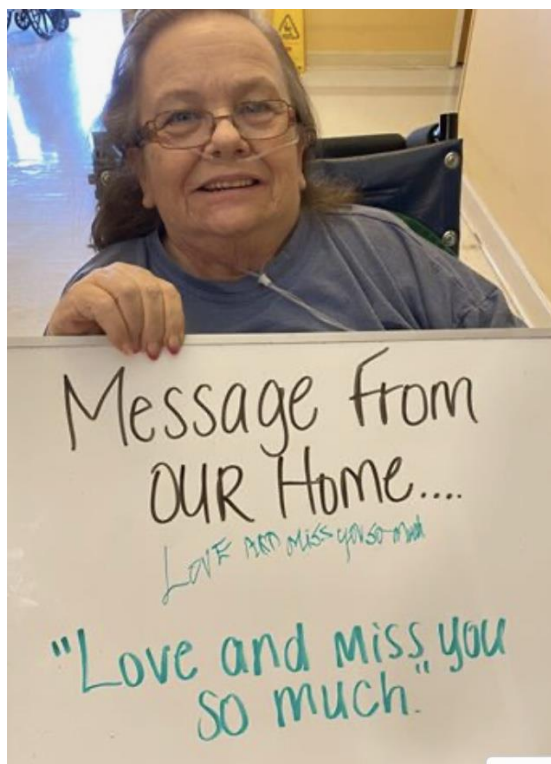 Message From
OUR Home....
LOVE AND MISS you so much
"Love and miss you
so much."